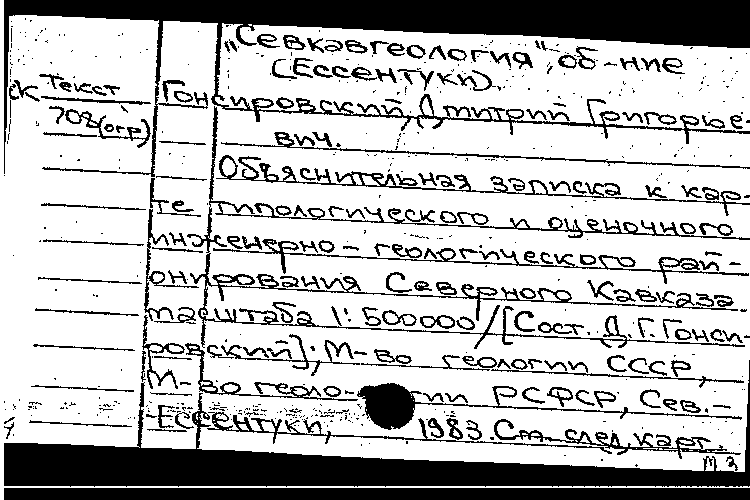 „Севкавгеология", об-ние
(Ессентуки).
ск Текст
708(огр)
Гонсировский, Дмитрий Григорье-
вич.
Объяснительная записка к кар-
те типологического и оценочного
инженерно-геологического рай-
онирования Северного Кавказа
масштаба 1:500000/[Сост. Д.Г. Гонси-
ровский]; М-во геологии СССР,
М-во геоло- гии РСФСР, Сев.-
Ессентуки, 1983. См. след. карт.